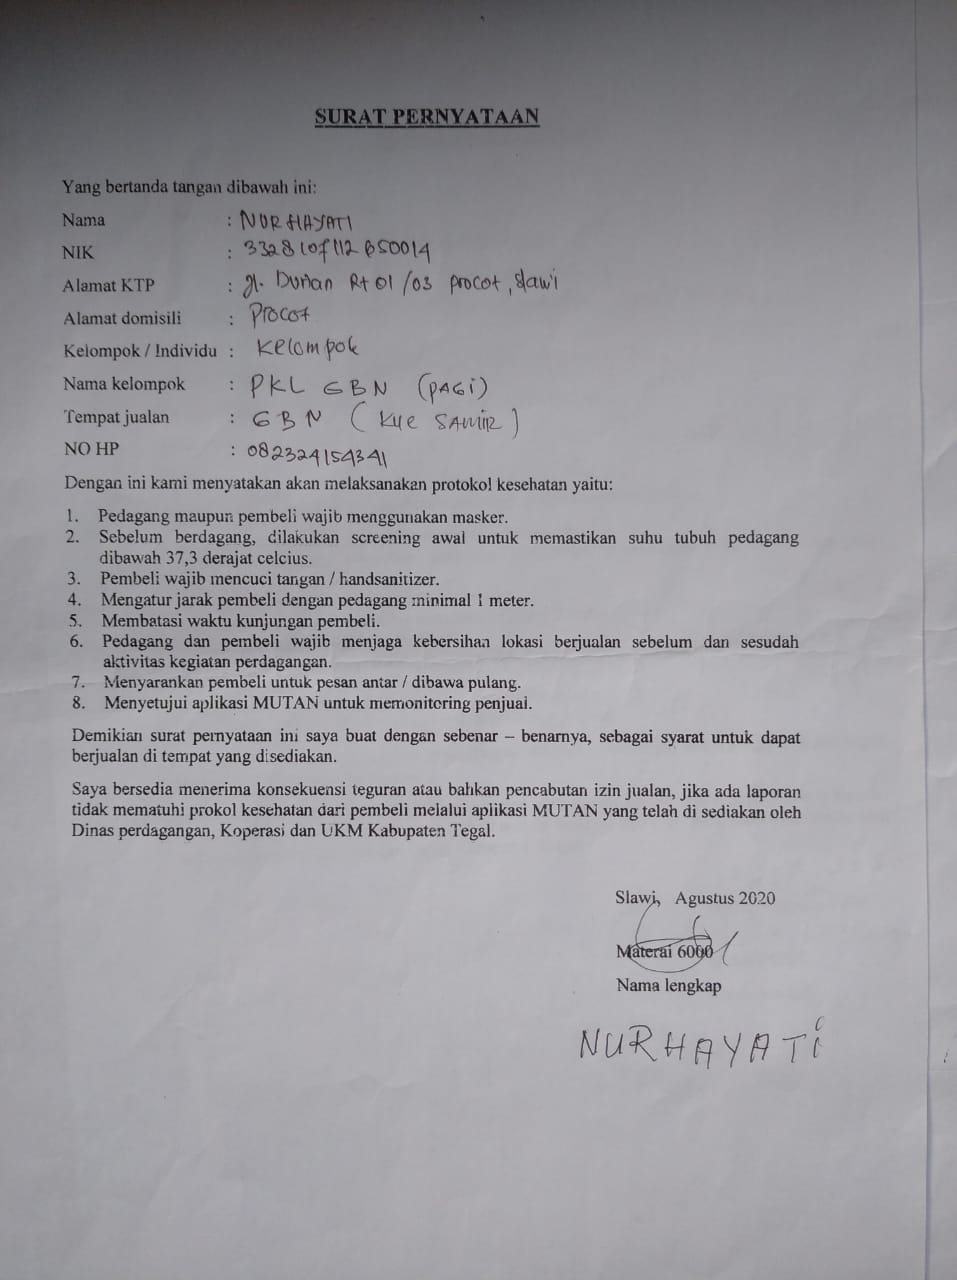 SURAT PERNYATAAN
Yang bertanda tangan dibawah ini:
Nama : NURHAYATI
NIK :
Alamat KTP : Jl. Durian Rt 01/03 procot, slawi
Alamat domisili : Procot
Kelompok / Individu : Kelompok
Nama kelompok : PKL GBN (PAGI)
Tempat jualan : GBN (KUE SAMIR)
NO HP : 082324154341
Dengan ini kami menyatakan akan melaksanakan protokol kesehatan yaitu:
1. Pedagang maupun pembeli wajib menggunakan masker.
2. Sebelum berdagang, dilakukan screening awal untuk memastikan suhu tubuh pedagang
dibawah 37,3 derajat celcius.
3. Pembeli wajib mencuci tangan / handsanitizer.
4. Mengatur jarak pembeli dengan pedagang minimal 1 meter.
5. Membatasi waktu kunjungan pembeli.
6. Pedagang dan pembeli wajib menjaga kebersihan lokasi berjualan sebelum dan sesudah
aktivitas kegiatan perdagangan.
7. Menyarankan pembeli untuk pesan antar / dibawa pulang.
8. Menyetujui aplikasi MUTAN untuk memonitoring penjual.
Demikian surat pernyataan ini saya buat dengan sebenar – benarnya, sebagai syarat untuk dapat
berjualan di tempat yang disediakan.
Saya bersedia menerima konsekuensi teguran atau bahkan pencabutan izin jualan, jika ada laporan
tidak mematuhi prokol kesehatan dari pembeli melalui aplikasi MUTAN yang telah di sediakan oleh
Dinas perdagangan, Koperasi dan UKM Kabupaten Tegal.
Slawi, Agustus 2020
Materai 6000
Nama lengkap
NURHAYATI